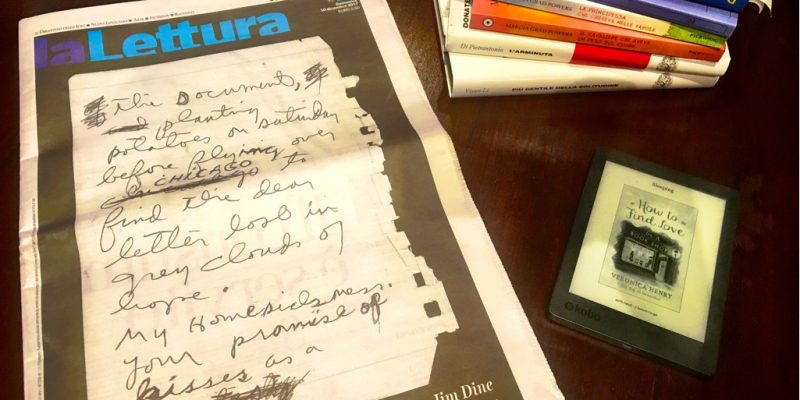 la Lettura
10 dicembre 2017
The Document,
planting
potatoes on Saturday
before flying over
CHICAGO
to
find the dear
letter lost in
grey clouds of
hope.
My Homesickness.
your promise of
kisses as a
Jim Dine
LA PRINCIPESSA
CHE CREDEVA NELLE FAVOLE
MARCIA GRAD POWERS
IL CAVALIERE CHE AVEVA
UN PESO SUL CUORE
Di Pietrantonio L'ARMINUTA
Yiyun Li PIÙ GENTILE DELLA SOLITUDINE
Sleeping
How to
Find Love
IN A
BOOK SHOP
VERONICA HENRY
kobo